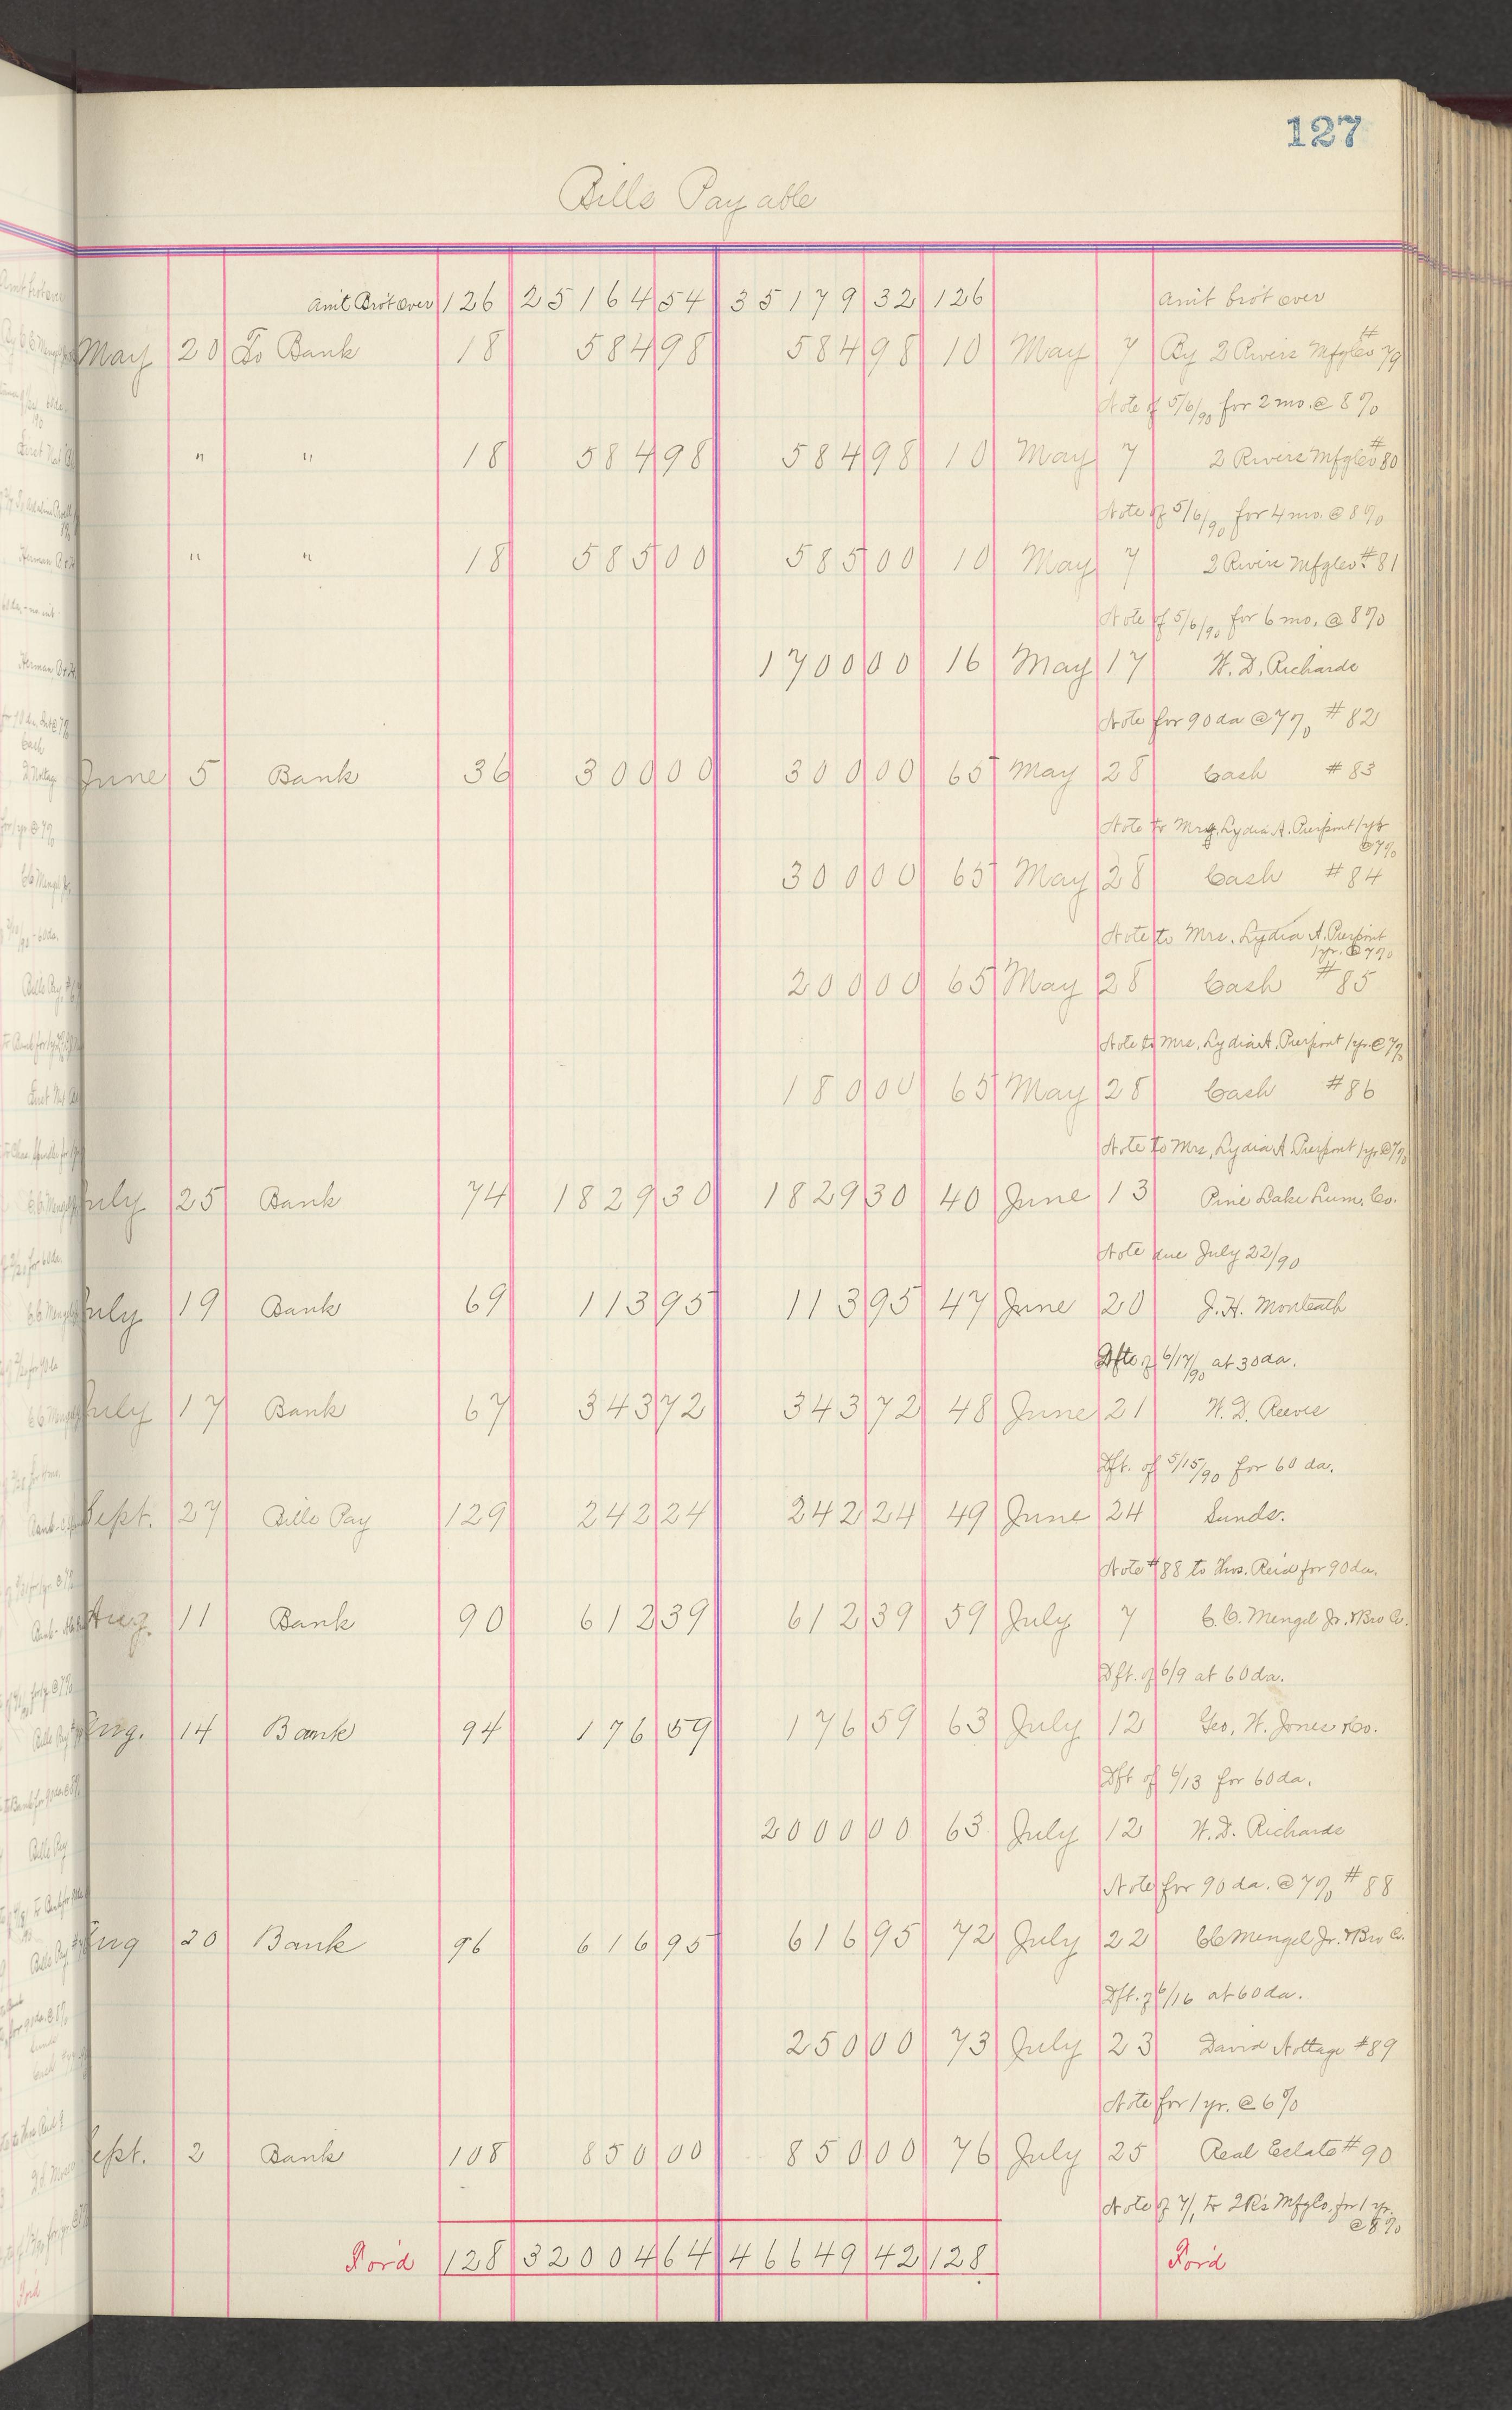 127
Bills Payable
Am't Bro't Over 126 25164 54 35179 32 126 Am't bro't over
May 20 To Bank 18 584 98 584 98 10 May 7 By 2 Rivers Mfg Co #79
Note of 5/6/90 for 2 mo. @ 8%
" " 18 584 98 584 98 10 May 7 2 Rivers Mfg Co #80
Note of 5/6/90 for 4 mo. @ 8%
" " 18 585 00 585 00 10 May 7 2 Rivers Mfg Co #81
Note of 5/6/90 for 6 mo. @ 8%
1700 00 16 May 17 W. D. Richards
Note for 90 da @ 7% #82
June 5 Bank 36 300 00 300 00 65 May 28 Cash #83
Note to Mrs. Lydia A. Pierpont 1 yr
@ 7%
300 00 65 May 28 Cash #84
Note to Mrs. Lydia A. Pierpont
1 yr. @ 7%
200 00 65 May 28 Cash #85
Note to Mrs. Lydia A. Pierpont 1 yr. @ 7%
180 00 65 May 28 Cash #86
Note to Mrs. Lydia A Pierpont 1 yr @ 7%
July 25 Bank 74 1829 30 1829 30 40 June 13 Pine Lake Lum. Co.
Note due July 22/90
July 19 Bank 69 113 95 113 95 47 June 20 J. H. Monteath
Dfts of 6/17/90 at 30 da.
July 17 Bank 67 343 72 343 72 48 June 21 W. D. Reeves
Dft. of 5/15/90 for 60 da.
Sept. 27 Bills Pay 129 242 24 242 24 49 June 24 Sunds.
Note #88 to Thos. Reid for 90 da.
Aug. 11 Bank 90 612 39 612 39 59 July 7 C. C. Mengel Jr. & Bro Co.
Dft. of 6/9 at 60 da.
Aug. 14 Bank 94 176 59 176 59 63 July 12 Geo. W. Jones & Co.
Dft of 6/13 for 60 da.
2000 00 63 July 12 W. D. Richards
Note for 90 da. @ 7% #88
Aug 20 Bank 96 616 95 616 95 72 July 22 C C Mengel Jr. & Bro Co.
Dft. of 6/16 at 60 da.
250 00 73 July 23 David Nottage #89
Note for 1 yr. @ 6%
Sept. 2 Bank 108 850 00 850 00 76 July 25 Real Estate #90
Note of 7/1 to 2 R's Mfg Co. for 1 yr.
@ 8%
For'd 128 32004 64 46649 42 128 For'd